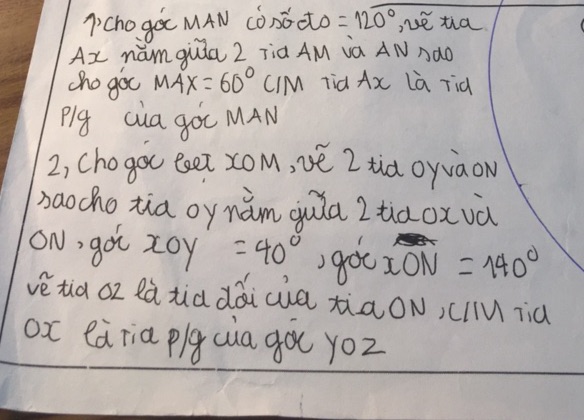 1, Cho góc MAN có số đo = 120°, vẽ tia
Ax nằm giữa 2 Tia AM và AN sao
cho góc MAX = 60° C/M Tia Ax là Tia
P/g của góc MAN
2, Cho góc bẹt XOM, vẽ 2 tia OY và ON
sao cho tia OY nằm giữa 2 tia OX và
ON, góc XOY = 40°, góc XON = 140°
vẽ tia OZ là tia đối của tia ON, C/M Tia
OX là Tia P/g của góc YOZ